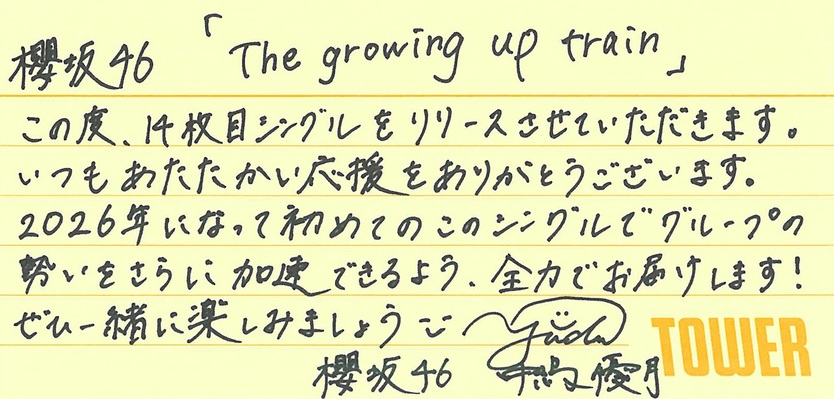 櫻坂46 「The growing up train」
この度、14枚目シングルをリリースさせていただきます。
いつもあたたかい応援をありがとうございます。
2026年になって初めてのこのシングルでグループの
勢いをさらに加速できるよう、全力でお届けします!
ぜひ一緒に楽しみましょう
櫻坂46 中嶋優月
TOWER